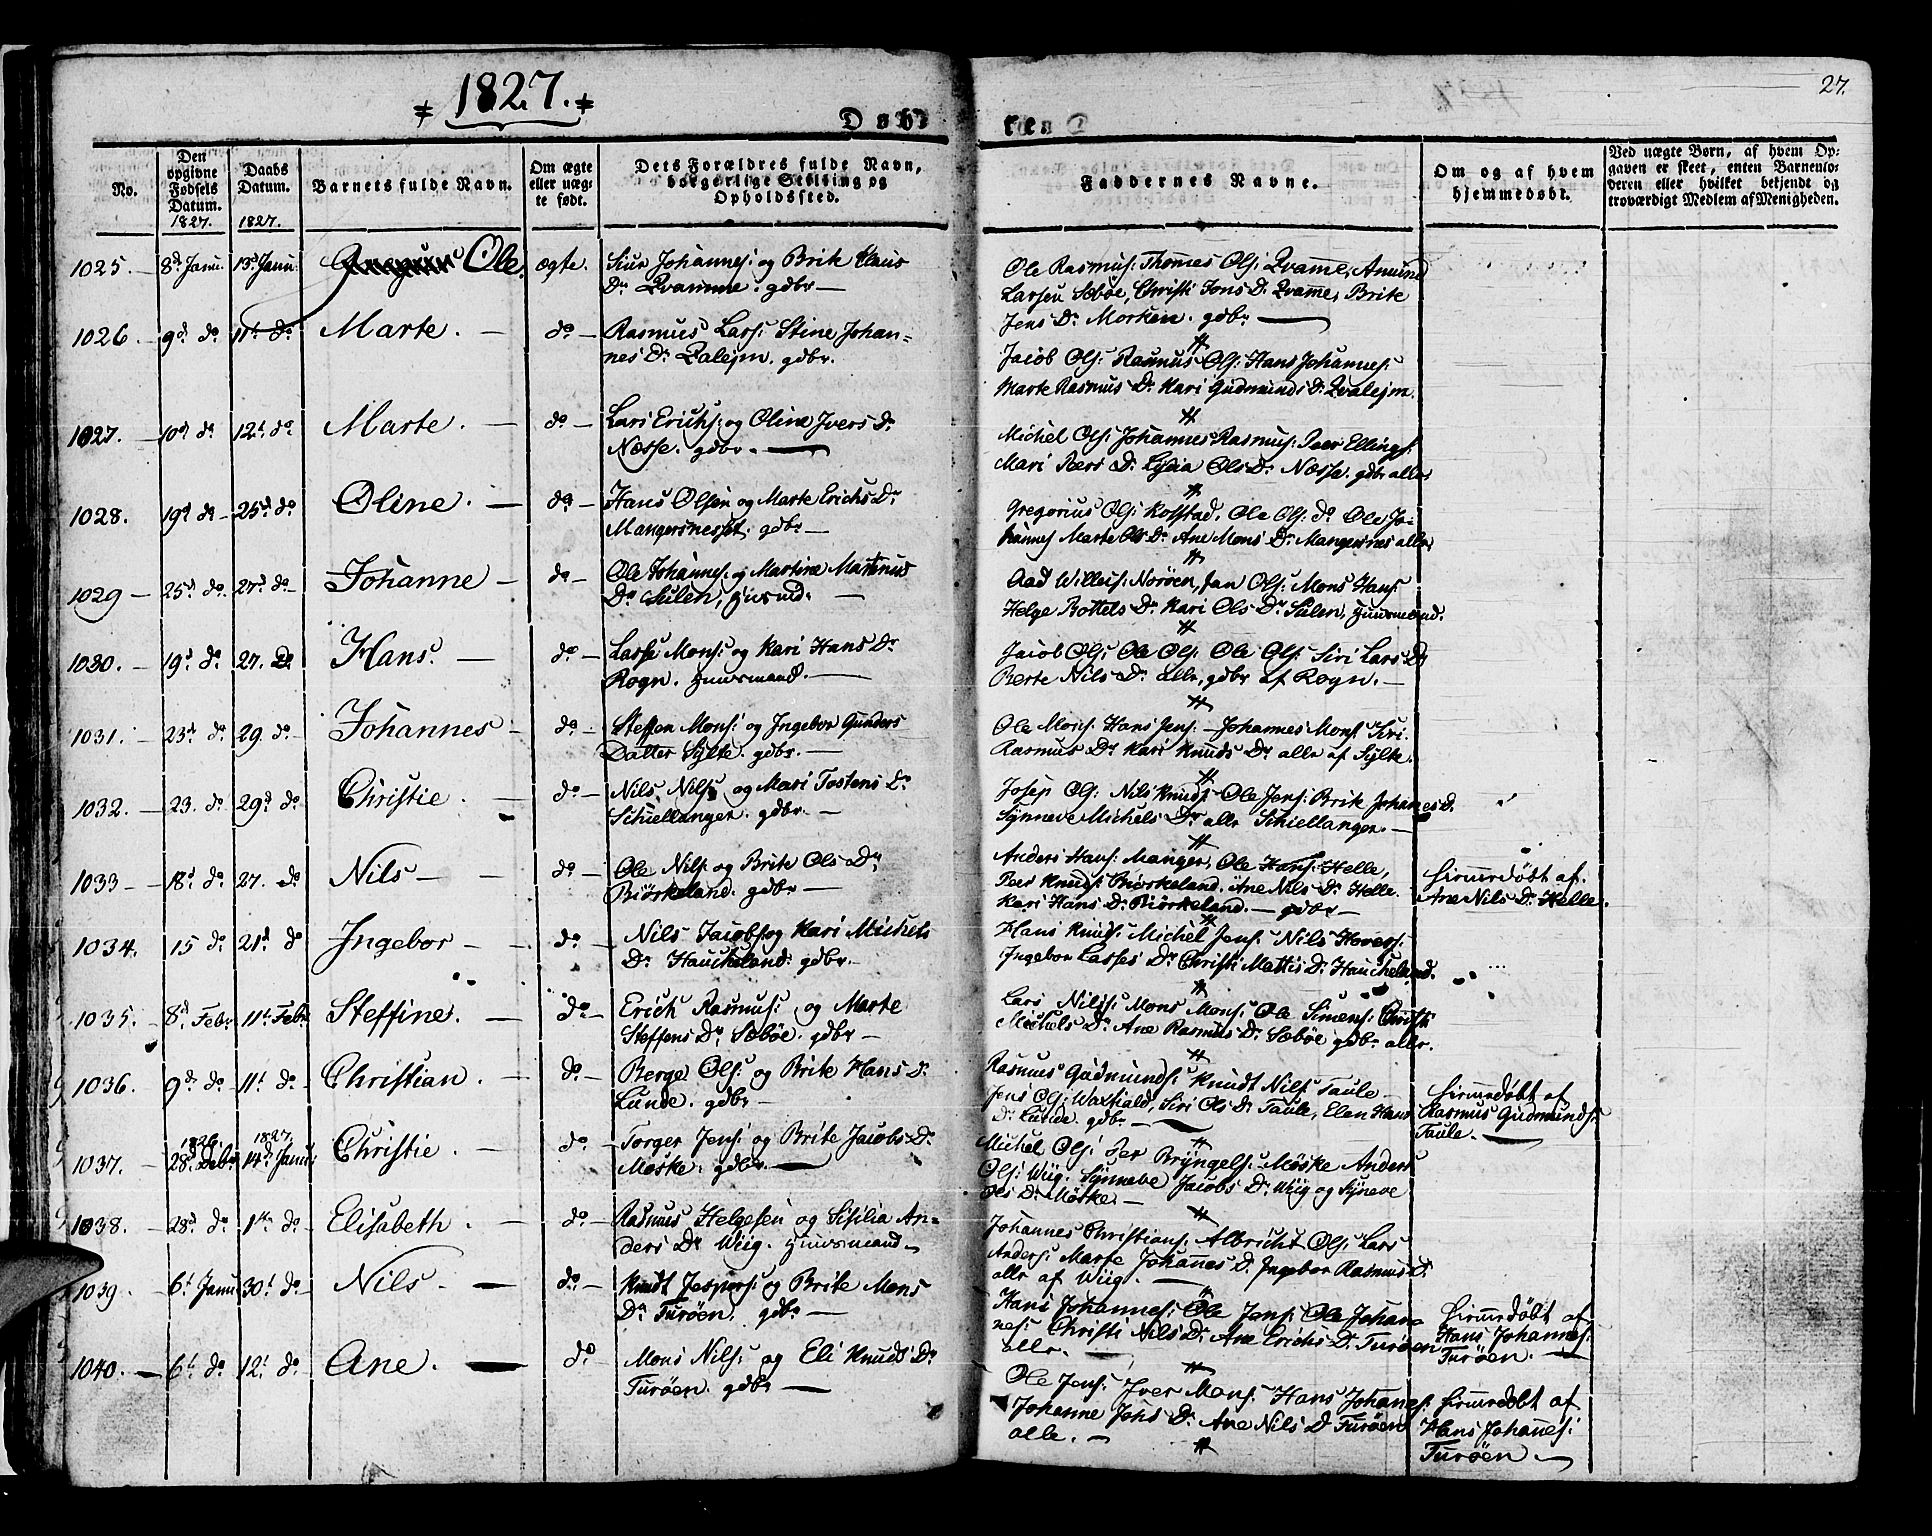 1827.
27.
Døbte
No.
Den opgivne Fødsels Datum. 1827.
Daabs Datum. 1827.
Barnets fulde Navn.
Om ægte eller uægte født.
Dets Forældres fulde Navn, borgerlige Stilling og Opholdssted.
Faddernes Navne.
Om og af hvem hjemmedøbt.
Ved uægte Børn, af hvem Opgaven er skeet, enten Barnemoderen eller hvilket bekjendt og troværdigt Medlem af Menigheden.
1025. 8d Janu. 13d Janu. Ole. ægte. Siur Johannes: og Brite Claus
Dr Qvamme. gdbr
Ole Rasmus: Thomes Ols: Qvamme, Amund
Larsen Sæbøe, Christi Jons D. Qvamme, Brite
Jens Dr Morken. gdbr
1026 9d do 11t do Marte. do Rasmus Lars: Stine Johan=
nes Dr Qvalejm. gdbr.
Jacob Ols: Rasmus Ols: Hans Johannes:
Marte Rasmus Dr Kari Gudmunds D. Qvalejm.
1027. 10d do 12t do Marte. do Lars Erichs: og Oline Ivers Dr
Næsse. gdbr.
Michel Ols: Johannes Rasmus: Peer Ellings:
Mari Peers Dr Lydia Ols Dr Næsse. gdbr alle.
1028. 19d do 25d do Oline. do Hans Olsen og Marte Erichs Dr
Mangersnesset. gdbr
Gregorius Ols: Kolstad. Ole Ols: do Ole Jo=
hannes Marte Ols Dr Ane Mons Dr Mangersnæs alle
1029 25d do 27d do Johanne do Ole Johannes: og Martine Martinus
Dr Sulen, huusmd.
Aad Willeis: Norøen, Jan Ols: Mons Hans:
Helge Bottels Dr Kari Ols Dr Sulen, huusmænd.
1030. 19d do 27. do Hans. do Lasse Mons: og Kari Hans Dr
Rogn. huusmand.
Jacob Ols: Ole Ols: Ole Ols: Siri Lars Dr
Berte Nils Dr alle, gdbr af Rogn.
1031. 23d do 29 do Johannes do Steffen Mons: og Ingebor Gunders
Datter Sylte. gdbr.
Ole Mons: Hans Jens: Johannes Mons: Siri
Rasmus Dr Kari Knuds Dr alle af Sylte.
1032. 23. do 29d do Christie. do Nils Nils: og Mari Tostens Dr
Schiellanger. gdbr.
Josep Ols: Nils Knuds: Ole Jens: Brite Johanes D.
Synneve Michels Dr alle Schiellanger.
1033 18d do 27. do Nils do Ole Nils: og Brite Ols Dr
Biørkeland. gdbr
Anders Hans: Manger, Ole Hans: Helle,
Peer Knuds: Biørkeland. Ane Nils Dr Helle.
Kari Hans Dr Biørkeland. gdbr
hiemedøbt af.
Ane Nils Dr Helle.
1034. 15 do 21d do Ingebor do Nils Jacobs: og Kari Michels
Dr Haucheland. gdbr.
Hans Knuds: Michel Jens: Nils Hovers:
Ingebor Lasses Dr Christi Mattis D. Haucheland.
1035. 8d Febr 11t Febr Steffine. do Erich Rasmus: og Marte
Steffens Dr Sæbøe. gdbr
Lars Nils: Mons Mons: Ole Simens: Christi
Michels Dr Ane Rasmus Dr Sæbøe gdbr. alle.
1036. 9d do 11t do Christian. do Berge Ols: og Brite Hans D.
Lunde. gdbr
Rasmus Gudmunds: Knudt Nils: Taule
Jens Ols: Waxfiald, Siri Ols D. Taule, Elen Hans
Dr Lunde. gdbr
hiemedøbt af
Rasmus Gudmunds:
Taule.
1037. 1826. 28d Debr 1827. 14d Janu: Christie. do Torger Jens: og Brite Jacobs D.
Møske. gdbr
Michel Ols: Per Bryngels: Møske Anders
Ols: Wiig. Synneve Jacobs Dr Wiig og Synneve
Ols D. Møske.
1038. 28d do 1te do Elisabeth. do Rasmus Helgesen og Sisilia An=
ders Dr Wiig. huusmand
Johannes Christians: Albricht Ols: Lars
Anders: Marte Johannes D. Ingebor Rasmus D.
alle af Wiig.
1039. 6t Janu 30t do Nils. do Knudt Jespers: og Brite Mons
Dr Turøen. gdbr
Hans Johannes: Ole Jens: Ole Johan=
nes: Christi Nils Dr Ane Erichs D. Turøen
alle.
hiemedøbt af
Hans Johannes:
Turøen.
1040. 6t do 12t do Ane. do Mons Nils: og Eli Knuds Dr
Turøen. gdbr
Ole Jens: Iver Mons: Hans Johanes:
Johanne Johs D. Ane Nils D Turøen
alle.
hiemedøbt af
Hans Johanes:
Turøen.